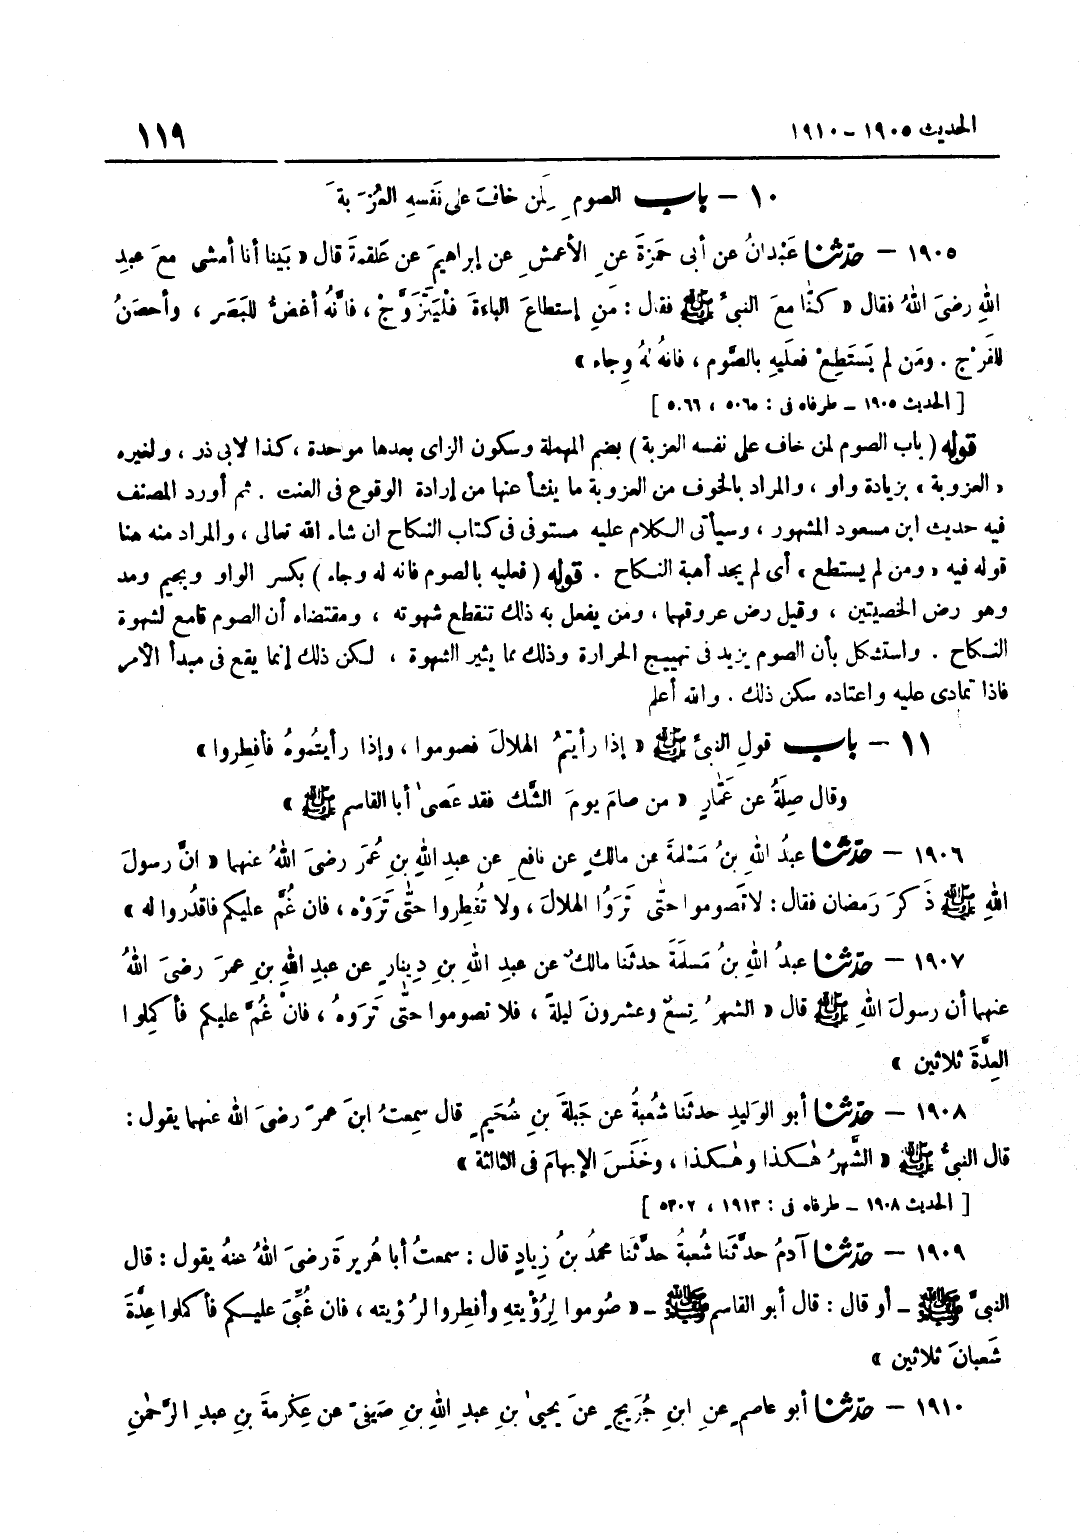 الحديث ١٩٠٥ - ١٩١٠
١١٩
١٠ - باب الصومِ لِمن خافَ على نَفسهِ العُزَبة
١٩٠٥ - حدّثنا عَبْدانُ عن أبى حَمزةَ عنِ الأعمشِ عن إبراهيمَ عن عَلقمةَ قال « بَينا أنا أمشى معَ عبدِ
اللهِ رضىَ اللهُ فقال « كنَّا معَ النبىِّ ﷺ فقال : مَنِ إستطاعَ الباءةَ فلْيَتَزَوَّجْ ، فانَّهُ أغضُّ للبَصَر ، وأحصَنُ
للفَرْج . ومَن لم يَستَطِعْ فعلَيهِ بالصَّوم ، فانهُ لهُ وِجاء »
[ الحديث ١٩٠٥ ـ طرفاه فى : ٥٠٦٥ ، ٥٠٦٦ ]
قوله ( باب الصوم لمن خاف على نفسه العزبة ) بضم المهملة وسكون الزاى بعدها موحدة ، كذا لابى ذر ، ولغيره
« العزوبة » بزيادة واو ، والمراد بالخوف من العزوبة ما ينشأ عنها من إرادة الوقوع فى العنت . ثم أورد المصنف
فيه حديث ابن مسعود المشهور ، وسيأتى الكلام عليه مستوفى فى كتاب النكاح ان شاء الله تعالى ، والمراد منه هنا
قوله فيه « ومن لم يستطع » أى لم يجد أهبة النكاح . قوله ( فعليه بالصوم فانه له وجاء ) بكسر الواو وبجيم ومد
وهو رض الخصيتين ، وقيل رض عروقهما ، ومن يفعل به ذلك تنقطع شهوته ، ومقتضاه أن الصوم قامع لشهوة
النكاح . واستشكل بأن الصوم يزيد فى تهييج الحرارة وذلك مما يثير الشهوة ، لكن ذلك إنما يقع فى مبدأ الأمر
فاذا تمادى عليه واعتاده سكن ذلك . والله أعلم
١١ - باب قولِ النبىِّ ﷺ « إذا رأيتمُ الهلالَ فصوموا ، وإذا رأيتُموهُ فأفطِروا »
وقال صِلَةُ عن عَمّارٍ « من صامَ يومَ الشَّك فقد عَصىٰ أبا القاسم ﷺ »
١٩٠٦ - حدّثنا عبدُ اللهِ بنُ مَسْلمةَ عن مالكٍ عن نافعٍ عن عبدِ اللهِ بنِ عُمرَ رضىَ اللهُ عنهما « انَّ رسولَ
اللهِ ﷺ ذَكرَ رَمضان فقال : لا تَصوموا حتّى تَرَوُا الهلالَ ، ولا تُفطِروا حتّى تَرَوْه ، فان غُمَّ عليكم فاقدُروا له »
١٩٠٧ - حدّثنا عبدُ اللهِ بنُ مَسلَمَةَ حدثَنا مالكٌ عن عبدِ اللهِ بنِ دِينارٍ عن عبدِ اللهِ بنِ عمرَ رضىَ اللهُ
عنهما أن رسولَ اللهِ ﷺ قال « الشهرُ تِسعٌ وعشرونَ ليلةً ، فلا تصوموا حتّى تَرَوهُ ، فانْ غُمَّ عليكم فأكمِلوا
العِدَّةَ ثلاثين »
١٩٠٨ - حدّثنا أبو الوَليدِ حدثَنا شُعبةُ عن جَبلةَ بنِ سُحَيمٍ قال سمِعتُ ابنَ عمرَ رضىَ الله عنهما يقول :
قال النبىُّ ﷺ « الشَّهرُ هٰكذا وهٰكذا ، وخَنَسَ الإبهامَ فى الثالثة »
[ الحديث ١٩٠٨ ـ طرفاه فى : ١٩١٣ ، ٥٣٠٢ ]
١٩٠٩ - حدّثنا آدمُ حدَّثَنا شُعبةُ حدَّثَنا محمدُ بنُ زِيادٍ قال : سمعتُ أبا هُريرةَ رضىَ اللهُ عنهُ يقول : قال
النبىُّ ﷺ ـ أو قال : قال أبو القاسم ﷺ ـ « صُوموا لِرُؤْيتهِ وأفطِروا لرُؤيته ، فان غُبِّىَ عليكم فأكملوا عِدَّةَ
شَعبانَ ثلاثين »
١٩١٠ - حدّثنا أبو عاصمٍ عنِ ابنِ جُرَيجٍ عنَ يحيىٰ بنِ عبدِ اللهِ بنِ صَيفىّ عن عِكْرِمةَ بنِ عبدِ الرَّحمٰنِ